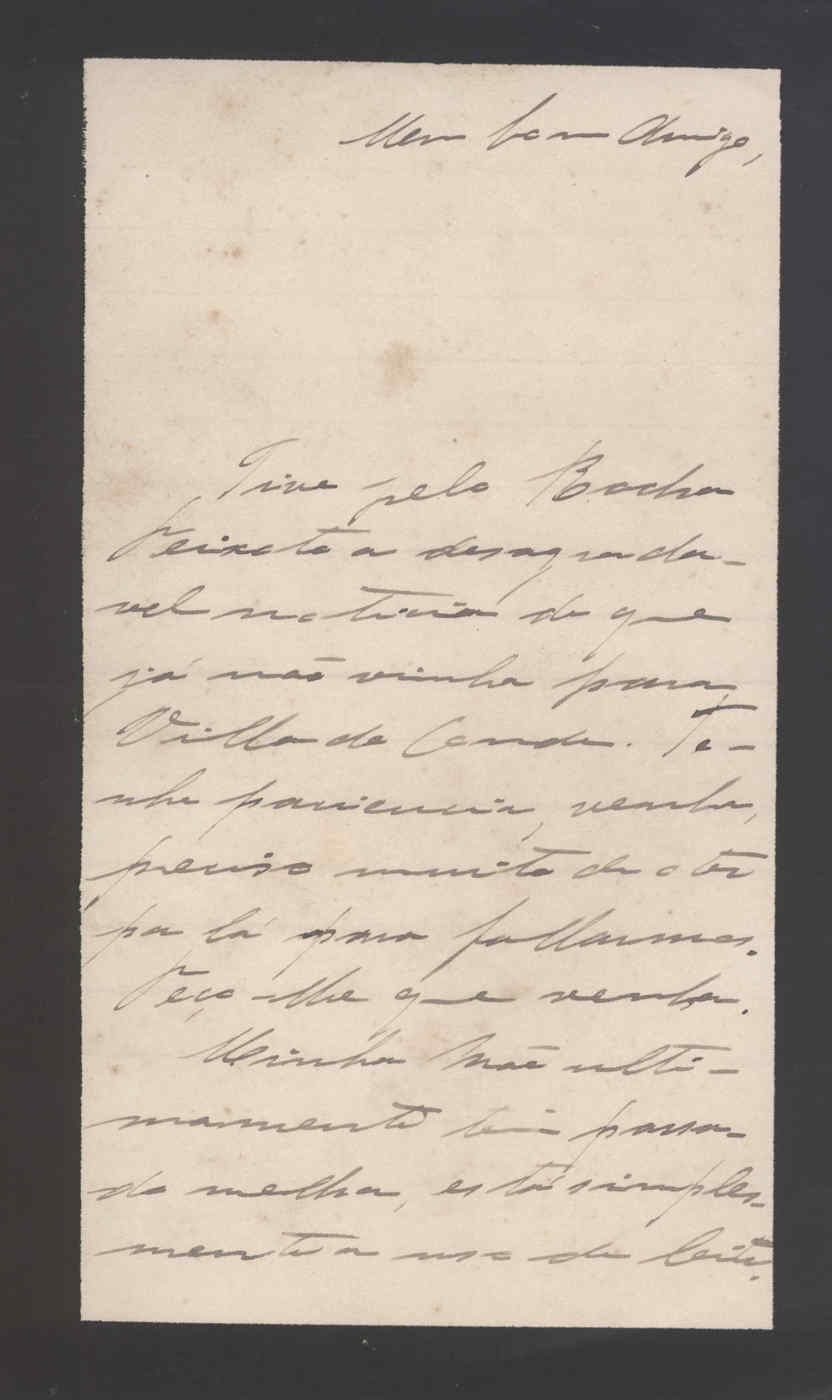 Meu bom Amigo,
Tive pelo Rocha
Peixoto a desagrada-
vel noticia de que
já não vinha para
Villa do Conde. Te-
nha paciencia, venha,
preciso muito de o ter
por lá para fallarmos.
Peço-lhe que venha.
Minha Mãe ulti-
mamente tem passa-
do melhor, está simples-
mente a uso de leite.